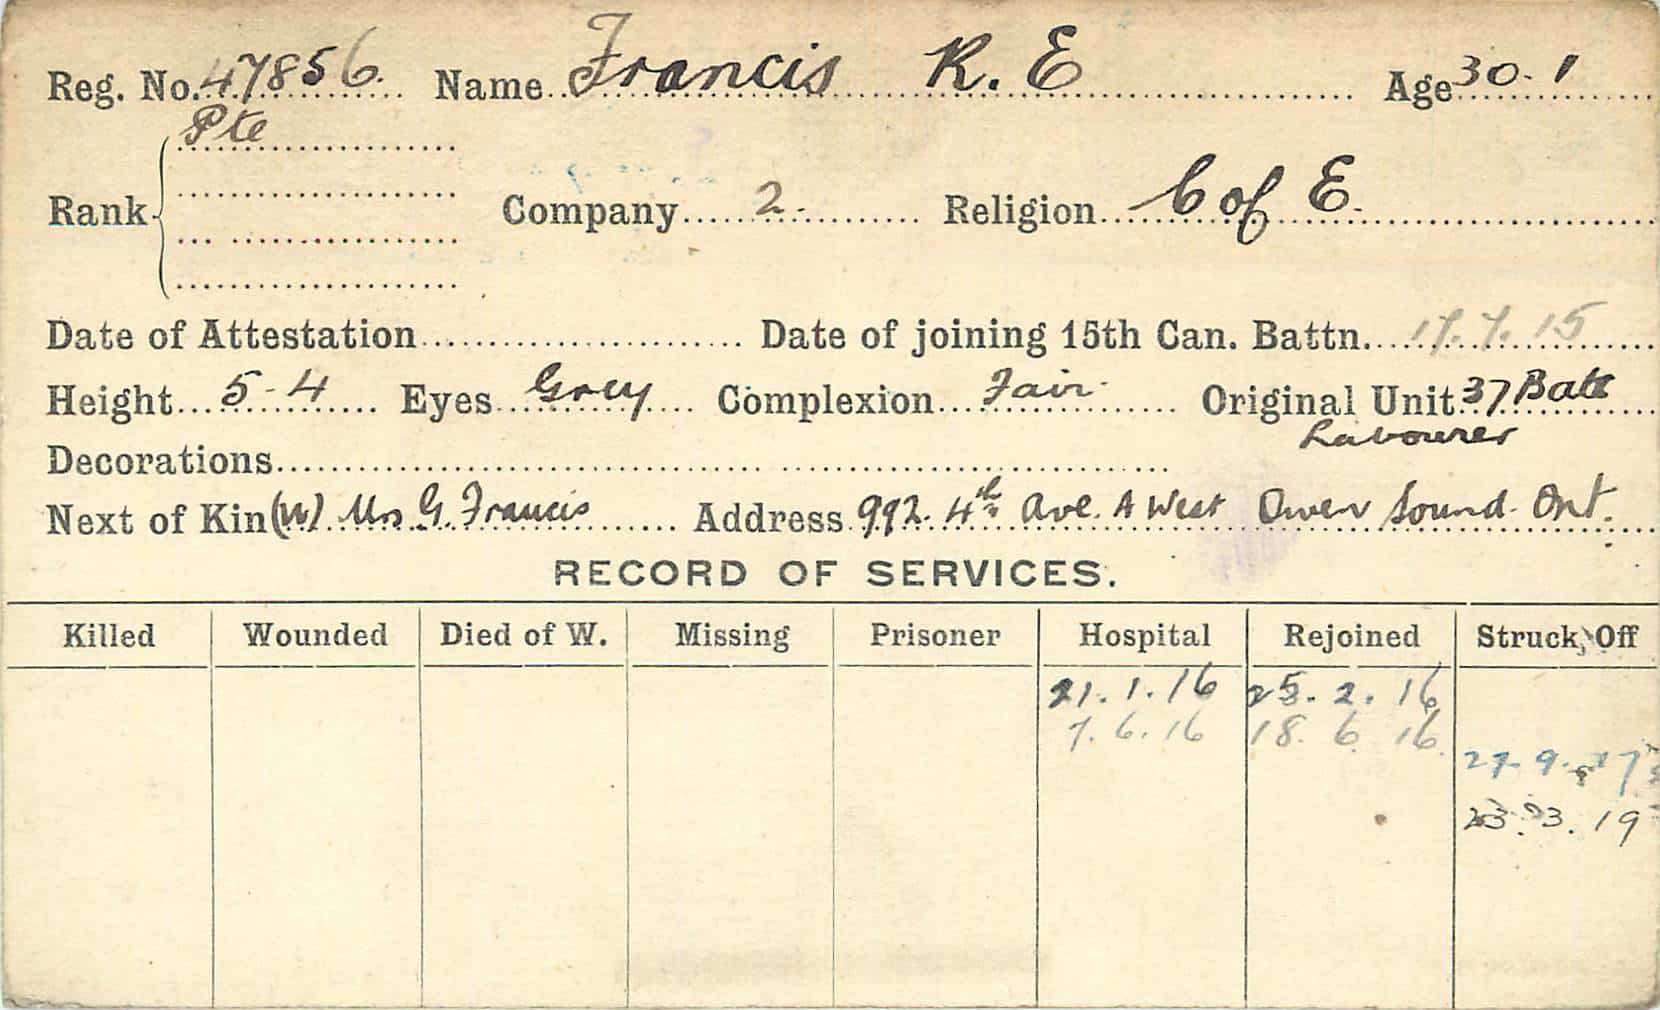 Reg. No. 47856 Name Francis R. E Age 30. 1
Pte
Rank Company 2. Religion C of E.
Date of Attestation Date of joining 15th Can. Battn. 17. 7. 15
Height 5-4 Eyes Grey Complexion Fair Original Unit 37 Batt
Labourer
Decorations
Next of Kin (W) Mrs G. Francis Address 992. 4th Ave. A West Owen Sound Ont.
RECORD OF SERVICES.
Killed Wounded Died of W. Missing Prisoner Hospital Rejoined Struck Off
21. 1. 16 25. 2. 16
7. 6. 16 18. 6 16
27 9 17
23. 3. 19